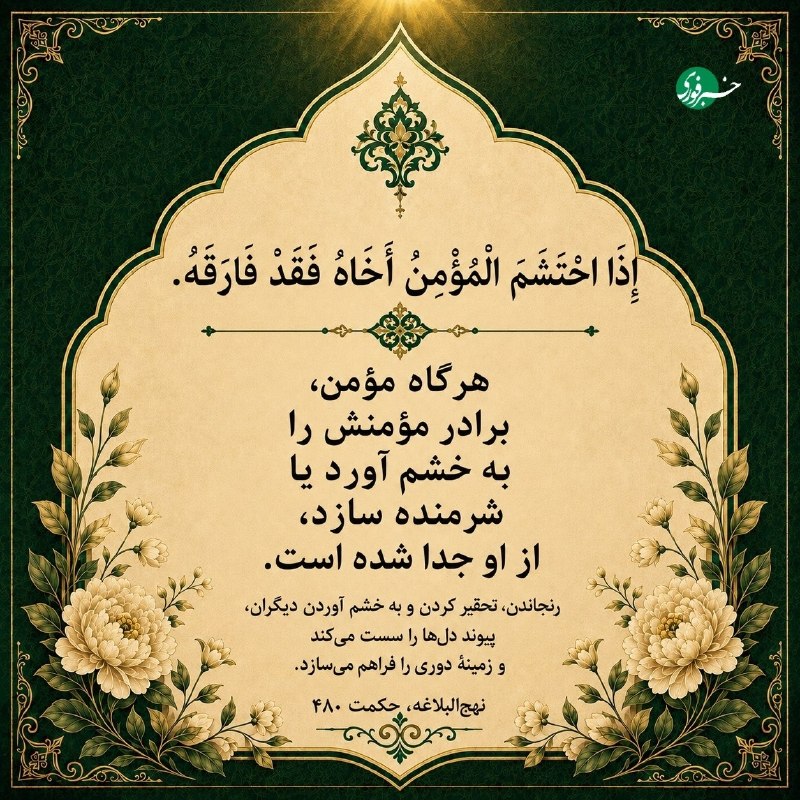 خبرفوری
إِذَا احْتَشَمَ الْمُؤْمِنُ أَخَاهُ فَقَدْ فَارَقَهُ.
هرگاه مؤمن،
برادر مؤمنش را
به خشم آورد یا
شرمنده سازد،
از او جدا شده است.
رنجاندن، تحقیر کردن و به خشم آوردن دیگران،
پیوند دل‌ها را سست می‌کند
و زمینهٔ دوری را فراهم می‌سازد.
نهج‌البلاغه، حکمت ۴۸۰